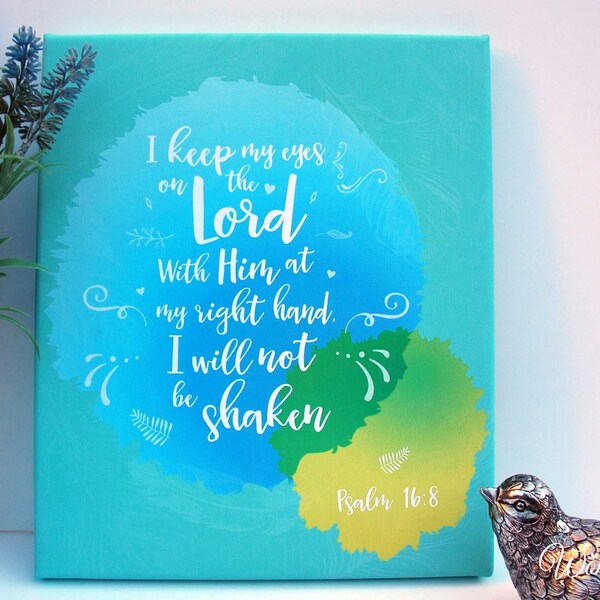 I keep my eyes
on the
Lord
With Him at
my right hand,
I will not
be shaken
Psalm 16:8